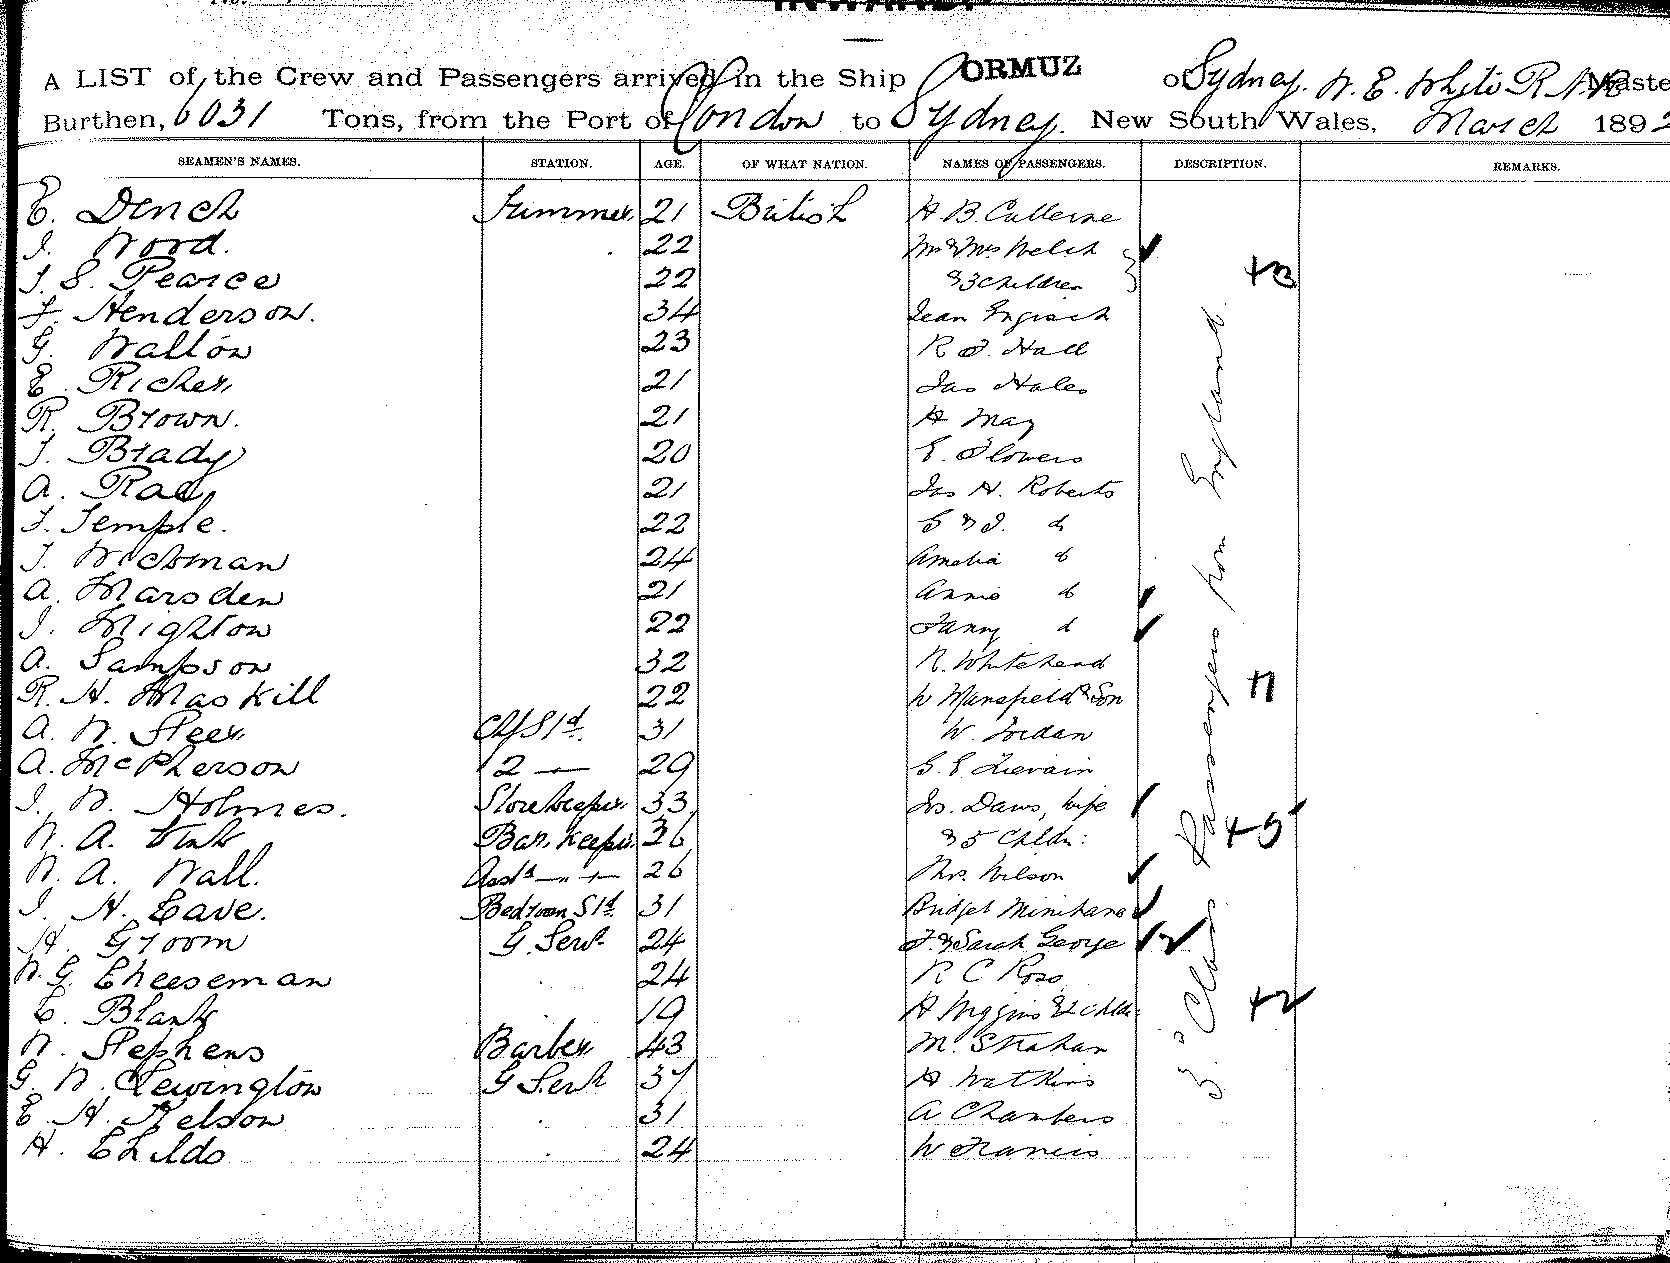 A LIST of the Crew and Passengers arrived in the Ship ORMUZ of Sydney. W. E. White R.N.R Maste
Burthen, 6031 Tons, from the Port of London to Sydney. New South Wales, March 1892
SEAMEN'S NAMES. STATION. AGE. OF WHAT NATION. NAMES OF PASSENGERS. DESCRIPTION. REMARKS.
E. Dench Trimmer 21 British H. B. Cullerne
J. Word. 22 Mr & Mrs Welch
J. S. Pearce 22 & 3 Children +3
F. Henderson. 34 Jean
G. Walton 23 R. J. Hall
E. Richer 21 Jas Hales
R. Brown. 21 H May
J. Brady 20 E. Flowers
A. Rae 21 Jas H. Roberts
F. Temple. 22 G & J. do
J. Wickman 24 Amelia do
A. Marsden 21 Annie do
J. Mighton 22 Fanny do
A. Sampson 32 R. Whitehead
R. H. Maskill 22 W Mansfield & Son
A. W. Steer 31 W. Jordan
A. McPherson 2 — 29 G. E.
J. W. Holmes. Storekeeper 33 Jos. Daws, wife
W. A. Bar Keeper 36 & 5 Chldn: +5
W. A. Wall. Asst 26 Mrs. Wilson
J. H. Cave. Bedroom Std. 31 Bridget
H. Groom G. Servt 24 J. & Sarah George
W. G. Cheeseman 24 R C Ross
C. Blank 19 H Wiggins & 2 chldn +2
W. Stephens Barber 43 M. Strahan
G. W. Lewington G Servt 37 H Watkins
E. H. Kelson 31 A Chambers
H. Childs 24 W Francis
3rd Class Passengers from England